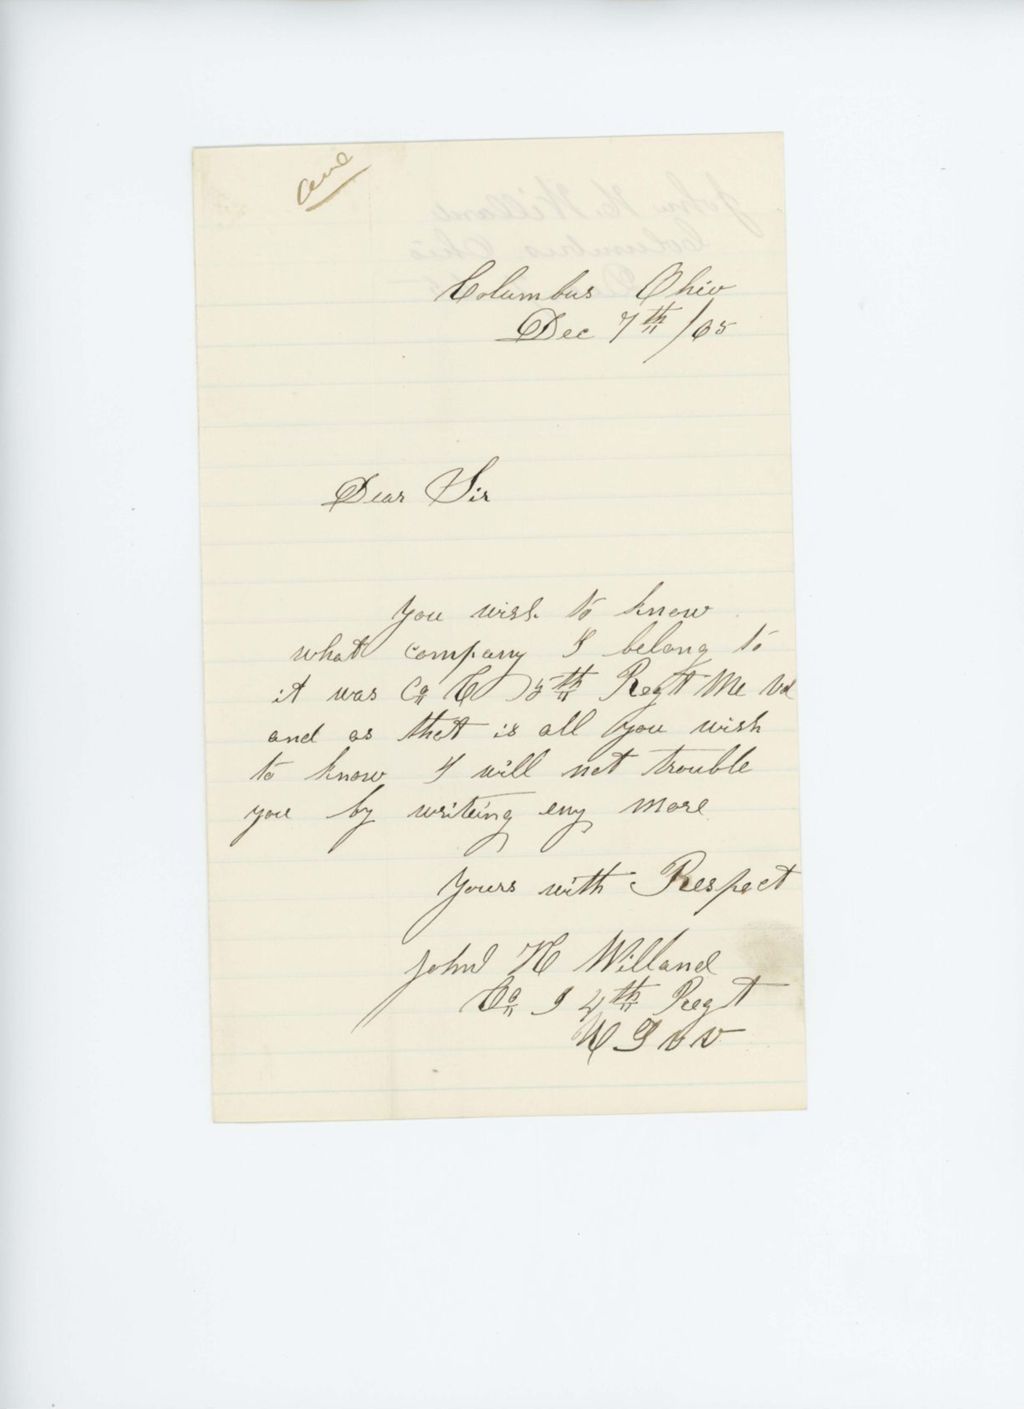 Columbus Ohio
Dec 7th /65
Dear Sir
You wish to know
what company I belong to
it was Co C 15th Regt Me Vol
and as that is all you wish
to know I will not trouble
you by writeing eny more
Yours with Respect
John H Willand
Co I 4th Regt
U S V V